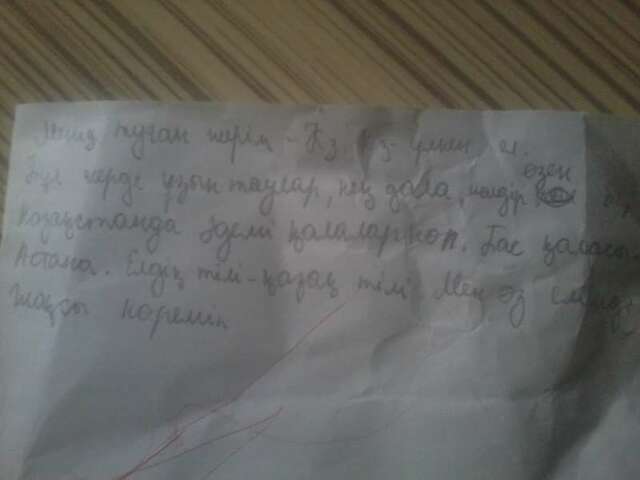 Менің туған жерім - Қз. Қз - үлкен ел.
Бұл жерде ұзын таулар, кең дала, мөлдір өзен
Қазақстанда әдемі қалалар көп. Бас қаласы
Астана. Елдің тілі - қазақ тілі Мен өз елімді
жақсы көремін